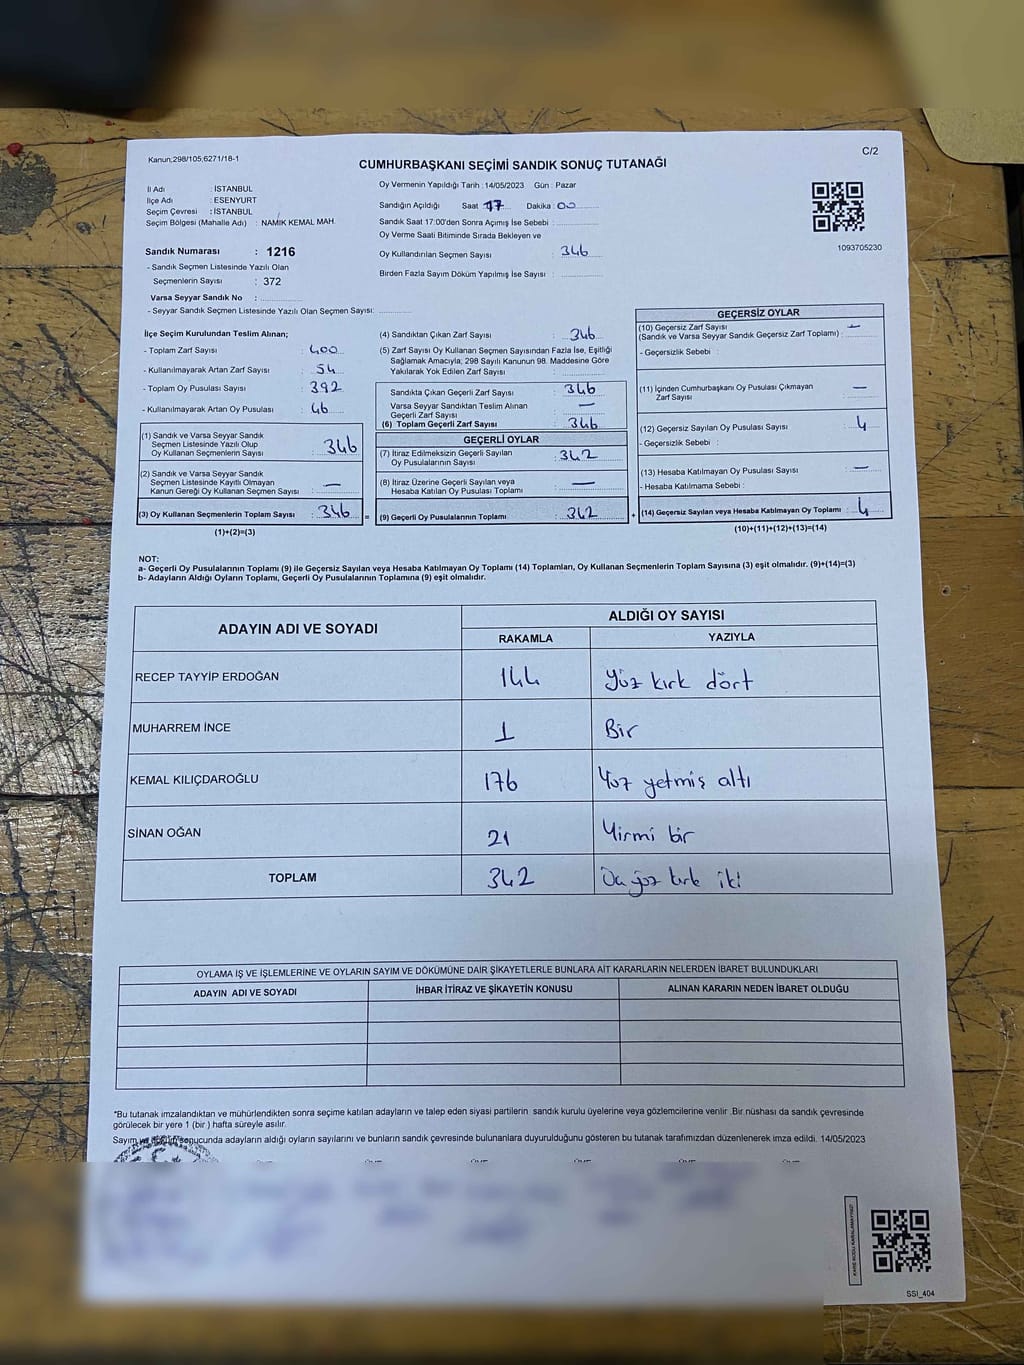 Kanun;298/105;6271/18-1
C/2
CUMHURBAŞKANI SEÇİMİ SANDIK SONUÇ TUTANAĞI
İl Adı : İSTANBUL
İlçe Adı : ESENYURT
Seçim Çevresi : İSTANBUL
Seçim Bölgesi (Mahalle Adı) : NAMIK KEMAL MAH.
Sandık Numarası : 1216
- Sandık Seçmen Listesinde Yazılı Olan
Seçmenlerin Sayısı : 372
Varsa Seyyar Sandık No :
- Seyyar Sandık Seçmen Listesinde Yazılı Olan Seçmen Sayısı:
Oy Vermenin Yapıldığı Tarih : 14/05/2023 Gün : Pazar
Sandığın Açıldığı Saat 17 Dakika : 00
Sandık Saat 17:00'den Sonra Açımış İse Sebebi :
Oy Verme Saati Bitiminde Sırada Bekleyen ve
Oy Kullandırılan Seçmen Sayısı : 346
Birden Fazla Sayım Döküm Yapılmış İse Sayısı :
1093705230
İlçe Seçim Kurulundan Teslim Alınan;
- Toplam Zarf Sayısı : 400
- Kullanılmayarak Artan Zarf Sayısı : 54
- Toplam Oy Pusulası Sayısı : 392
- Kullanılmayarak Artan Oy Pusulası : 46
(1) Sandık ve Varsa Seyyar Sandık
Seçmen Listesinde Yazılı Olup
Oy Kullanan Seçmenlerin Sayısı : 346
(2) Sandık ve Varsa Seyyar Sandık
Seçmen Listesinde Kayıtlı Olmayan
Kanun Gereği Oy Kullanan Seçmen Sayısı : —
(3) Oy Kullanan Seçmenlerin Toplam Sayısı : 346 =
(1)+(2)=(3)
(4) Sandıktan Çıkan Zarf Sayısı : 346
(5) Zarf Sayısı Oy Kullanan Seçmen Sayısından Fazla İse, Eşitliği
Sağlamak Amacıyla; 298 Sayılı Kanunun 98. Maddesine Göre
Yakılarak Yok Edilen Zarf Sayısı :
Sandıkta Çıkan Geçerli Zarf Sayısı : 346
Varsa Seyyar Sandıktan Teslim Alınan
Geçerli Zarf Sayısı : —
(6) Toplam Geçerli Zarf Sayısı : 346
GEÇERLİ OYLAR
(7) İtiraz Edilmeksizin Geçerli Sayılan
Oy Pusulalarının Sayısı : 342
(8) İtiraz Üzerine Geçerli Sayılan veya
Hesaba Katılan Oy Pusulası Toplamı : —
(9) Geçerli Oy Pusulalarının Toplamı : 342 +
GEÇERSİZ OYLAR
(10) Geçersiz Zarf Sayısı
(Sandık ve Varsa Seyyar Sandık Geçersiz Zarf Toplamı) : —
- Geçersizlik Sebebi :
(11) İçinden Cumhurbaşkanı Oy Pusulası Çıkmayan
Zarf Sayısı : —
(12) Geçersiz Sayılan Oy Pusulası Sayısı : 4
- Geçersizlik Sebebi :
(13) Hesaba Katılmayan Oy Pusulası Sayısı : —
- Hesaba Katılmama Sebebi :
(14) Geçersiz Sayılan veya Hesaba Katılmayan Oy Toplamı : 4
(10)+(11)+(12)+(13)=(14)
NOT:
a- Geçerli Oy Pusulalarının Toplamı (9) ile Geçersiz Sayılan veya Hesaba Katılmayan Oy Toplamı (14) Toplamları, Oy Kullanan Seçmenlerin Toplam Sayısına (3) eşit olmalıdır. (9)+(14)=(3)
b- Adayların Aldığı Oyların Toplamı, Geçerli Oy Pusulalarının Toplamına (9) eşit olmalıdır.
ADAYIN ADI VE SOYADI
ALDIĞI OY SAYISI
RAKAMLA YAZIYLA
RECEP TAYYİP ERDOĞAN 144 Yüz kırk dört
MUHARREM İNCE 1 Bir
KEMAL KILIÇDAROĞLU 176 Yüz yetmiş altı
SİNAN OĞAN 21 Yirmi bir
TOPLAM 342 Üç yüz kırk iki
OYLAMA İŞ VE İŞLEMLERİNE VE OYLARIN SAYIM VE DÖKÜMÜNE DAİR ŞİKAYETLERLE BUNLARA AİT KARARLARIN NELERDEN İBARET BULUNDUKLARI
ADAYIN ADI VE SOYADI İHBAR İTİRAZ VE ŞİKAYETİN KONUSU ALINAN KARARIN NEDEN İBARET OLDUĞU
*Bu tutanak imzalandıktan ve mühürlendikten sonra seçime katılan adayların ve talep eden siyasi partilerin sandık kurulu üyelerine veya gözlemcilerine verilir .Bir nüshası da sandık çevresinde
görülecek bir yere 1 (bir ) hafta süreyle asılır.
Sayım ve döküm sonucunda adayların aldığı oyların sayılarını ve bunların sandık çevresinde bulunanlara duyurulduğunu gösteren bu tutanak tarafımızdan düzenlenerek imza edildi. 14/05/2023
KARE KODU KARALAMAYINIZ!
SSİ_404